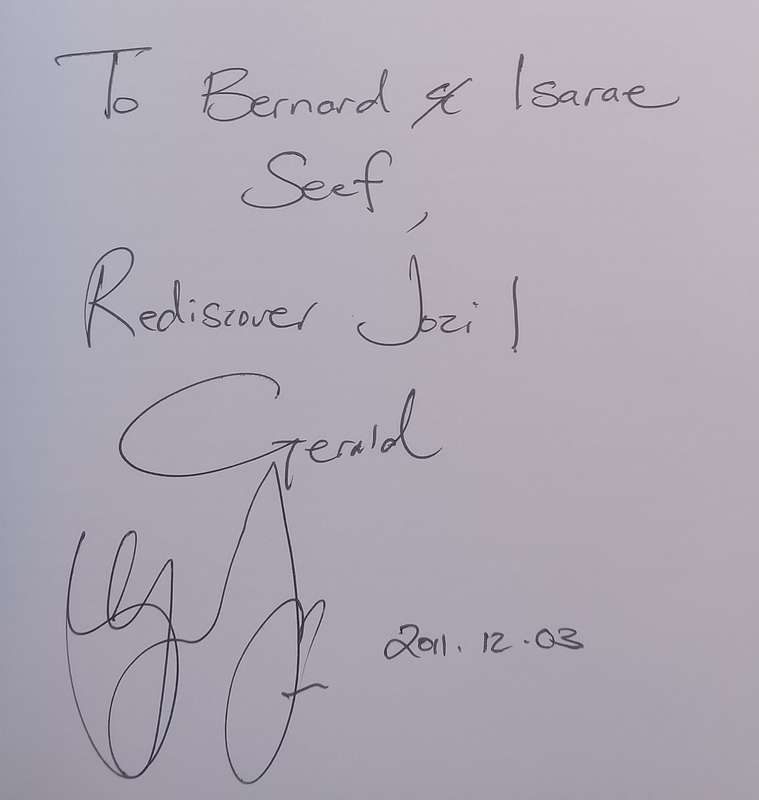 To Bernard & Isarae
Seef,
Rediscover Jozi!
Gerald
2011.12.03